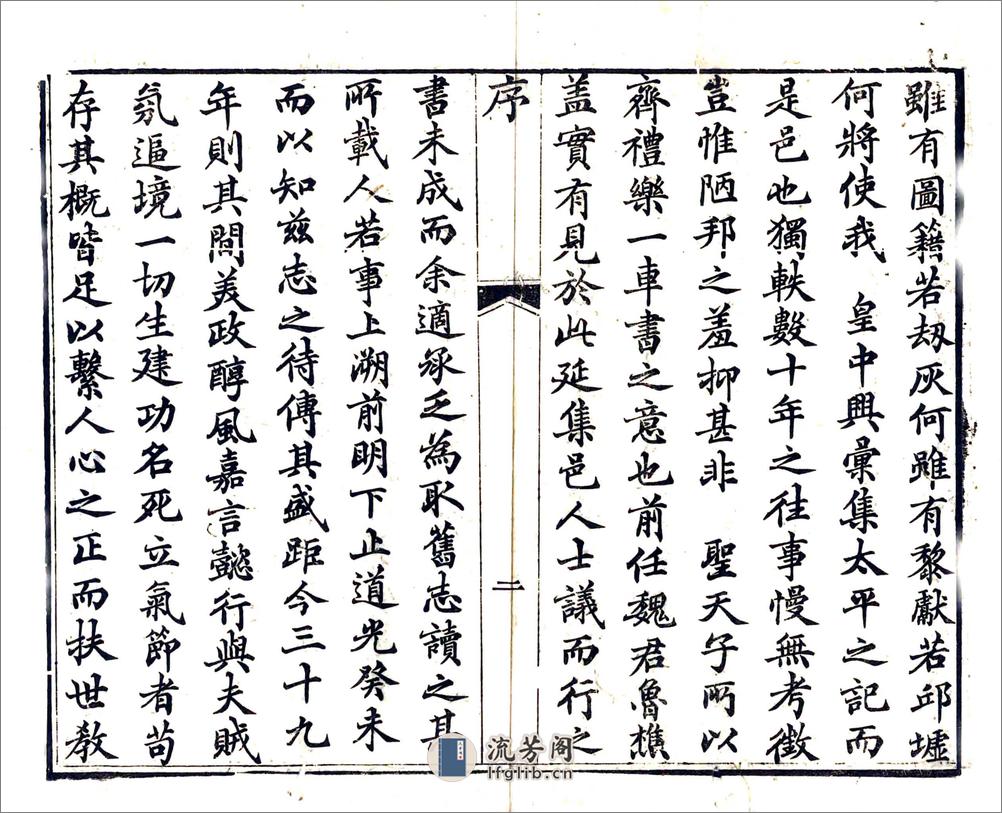 雖有圖籍若刼灰何雖有黎獻若邱墟
何將使我　皇中興彙集太平之記而
是邑也獨軼數十年之往事慢無考徵
豈惟陋邦之羞抑甚非　聖天子所以
齊禮樂一車書之意也前任魏君魯樵
盖實有見於此延集邑人士議而行之
序
二
書未成而余適承乏為取舊志讀之其
所載人若事上溯前明下止道光癸未
而以知兹志之待傳其盛距今三十九
年則其間美政醇風嘉言懿行與夫賊
氛逼境一切生建功名死立氣節者苟
存其概皆足以繫人心之正而扶世教
流芳阁
lfglib.cn